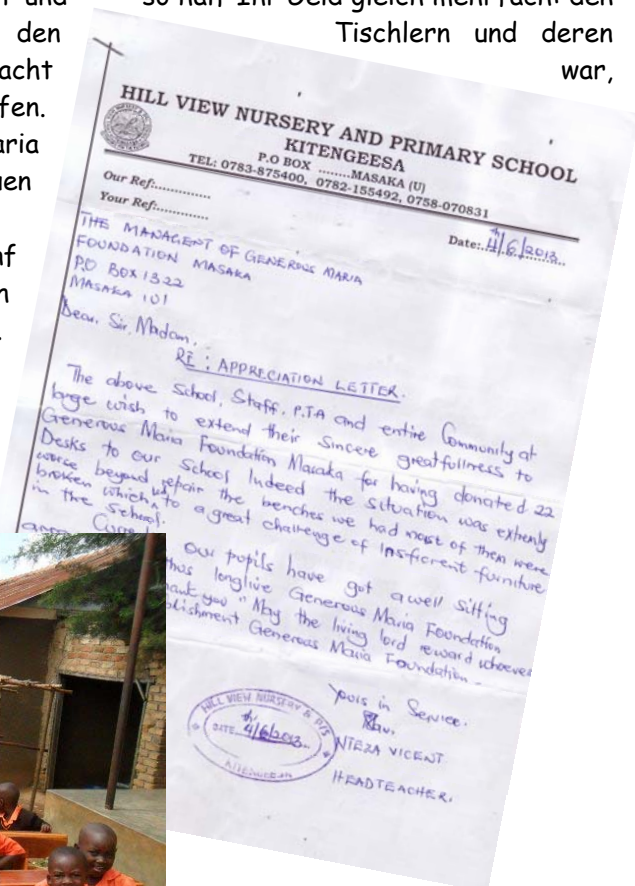 t und
so half Ihr Geld gleich mehrfach: den
den
Tischlern und deren
acht
war,
fen.
aria
uen
nf
n
HILL VIEW NURSERY AND PRIMARY SCHOOL
KITENGEESA
P.O BOX ........MASAKA (U)
TEL: 0783-875400, 0782-155492, 0758-070831
Our Ref:..............
Your Ref:.............
Date: 4th/6/2013
THE MANAGENT OF GENEROUS MARIA
FOUNDATION MASAKA
P.O BOX 1322
MASAKA 101
Dear, Sir, Madam,
RE : APPRECIATION LETTER.
The above School, Staff, P.T.A and entire Community at
large wish to extend their Sincere greatfullness to
Generous Maria Foundation Masaka for having donated 22
Desks to our School Indeed the situation was extremly
worse beyond repair the benches we had most of them were
broken which to a great challenge of insficient furniture
in the School.
Our pupils have got a well sitting
thus longlive Generous Maria Foundation
thank you " May the living lord reward whoever
blishment Generous Maria Foundation -
Yours in Service.
NTEZA VICENT
HEADTEACHER.
HILL VIEW NURSERY & P/S
DATE 4th/6/2013